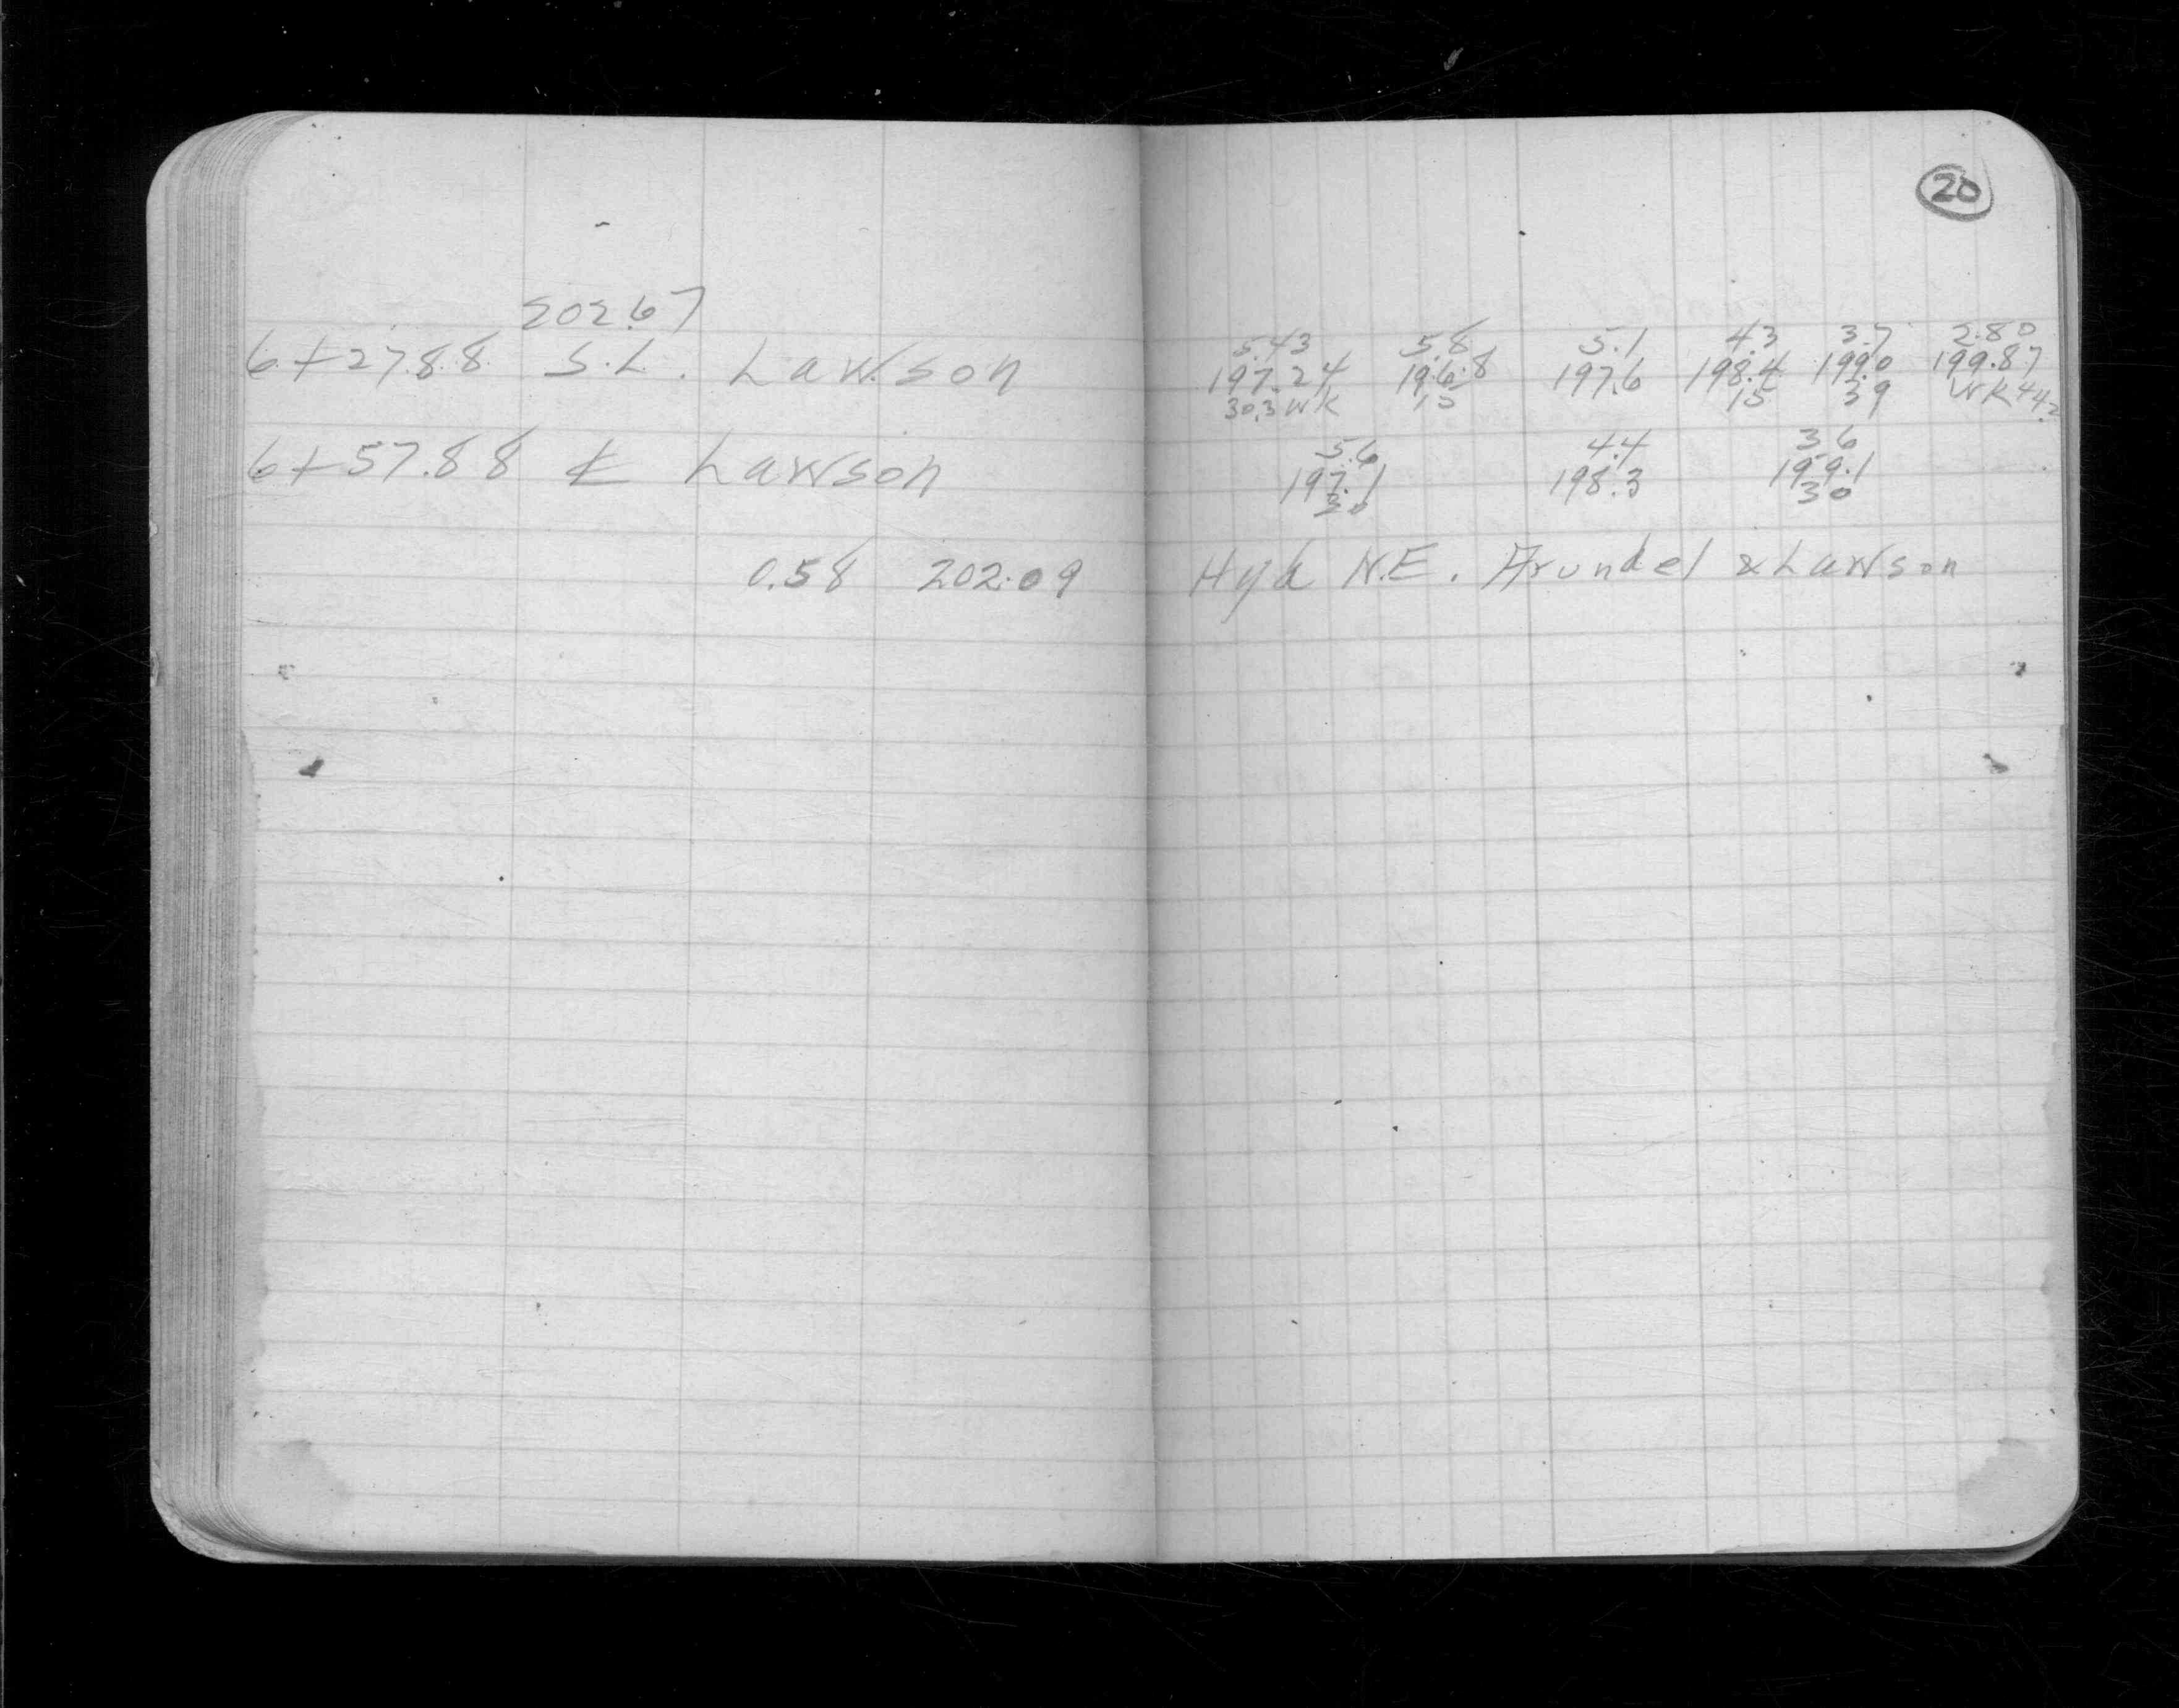 20
202.67
6+27.88 S.L. Lawson
5.43 5.8 5.1 4.3 3.7 2.80
197.24 196.8 197.6 198.4 199.0 199.87
30.3 WK 15 15 39 WK 44.2
6+57.88 ℄ Lawson
5.6 4.4 3.6
197.1 198.3 199.1
30 30
0.58 202.09 Hyd N.E. Arundel & Lawson